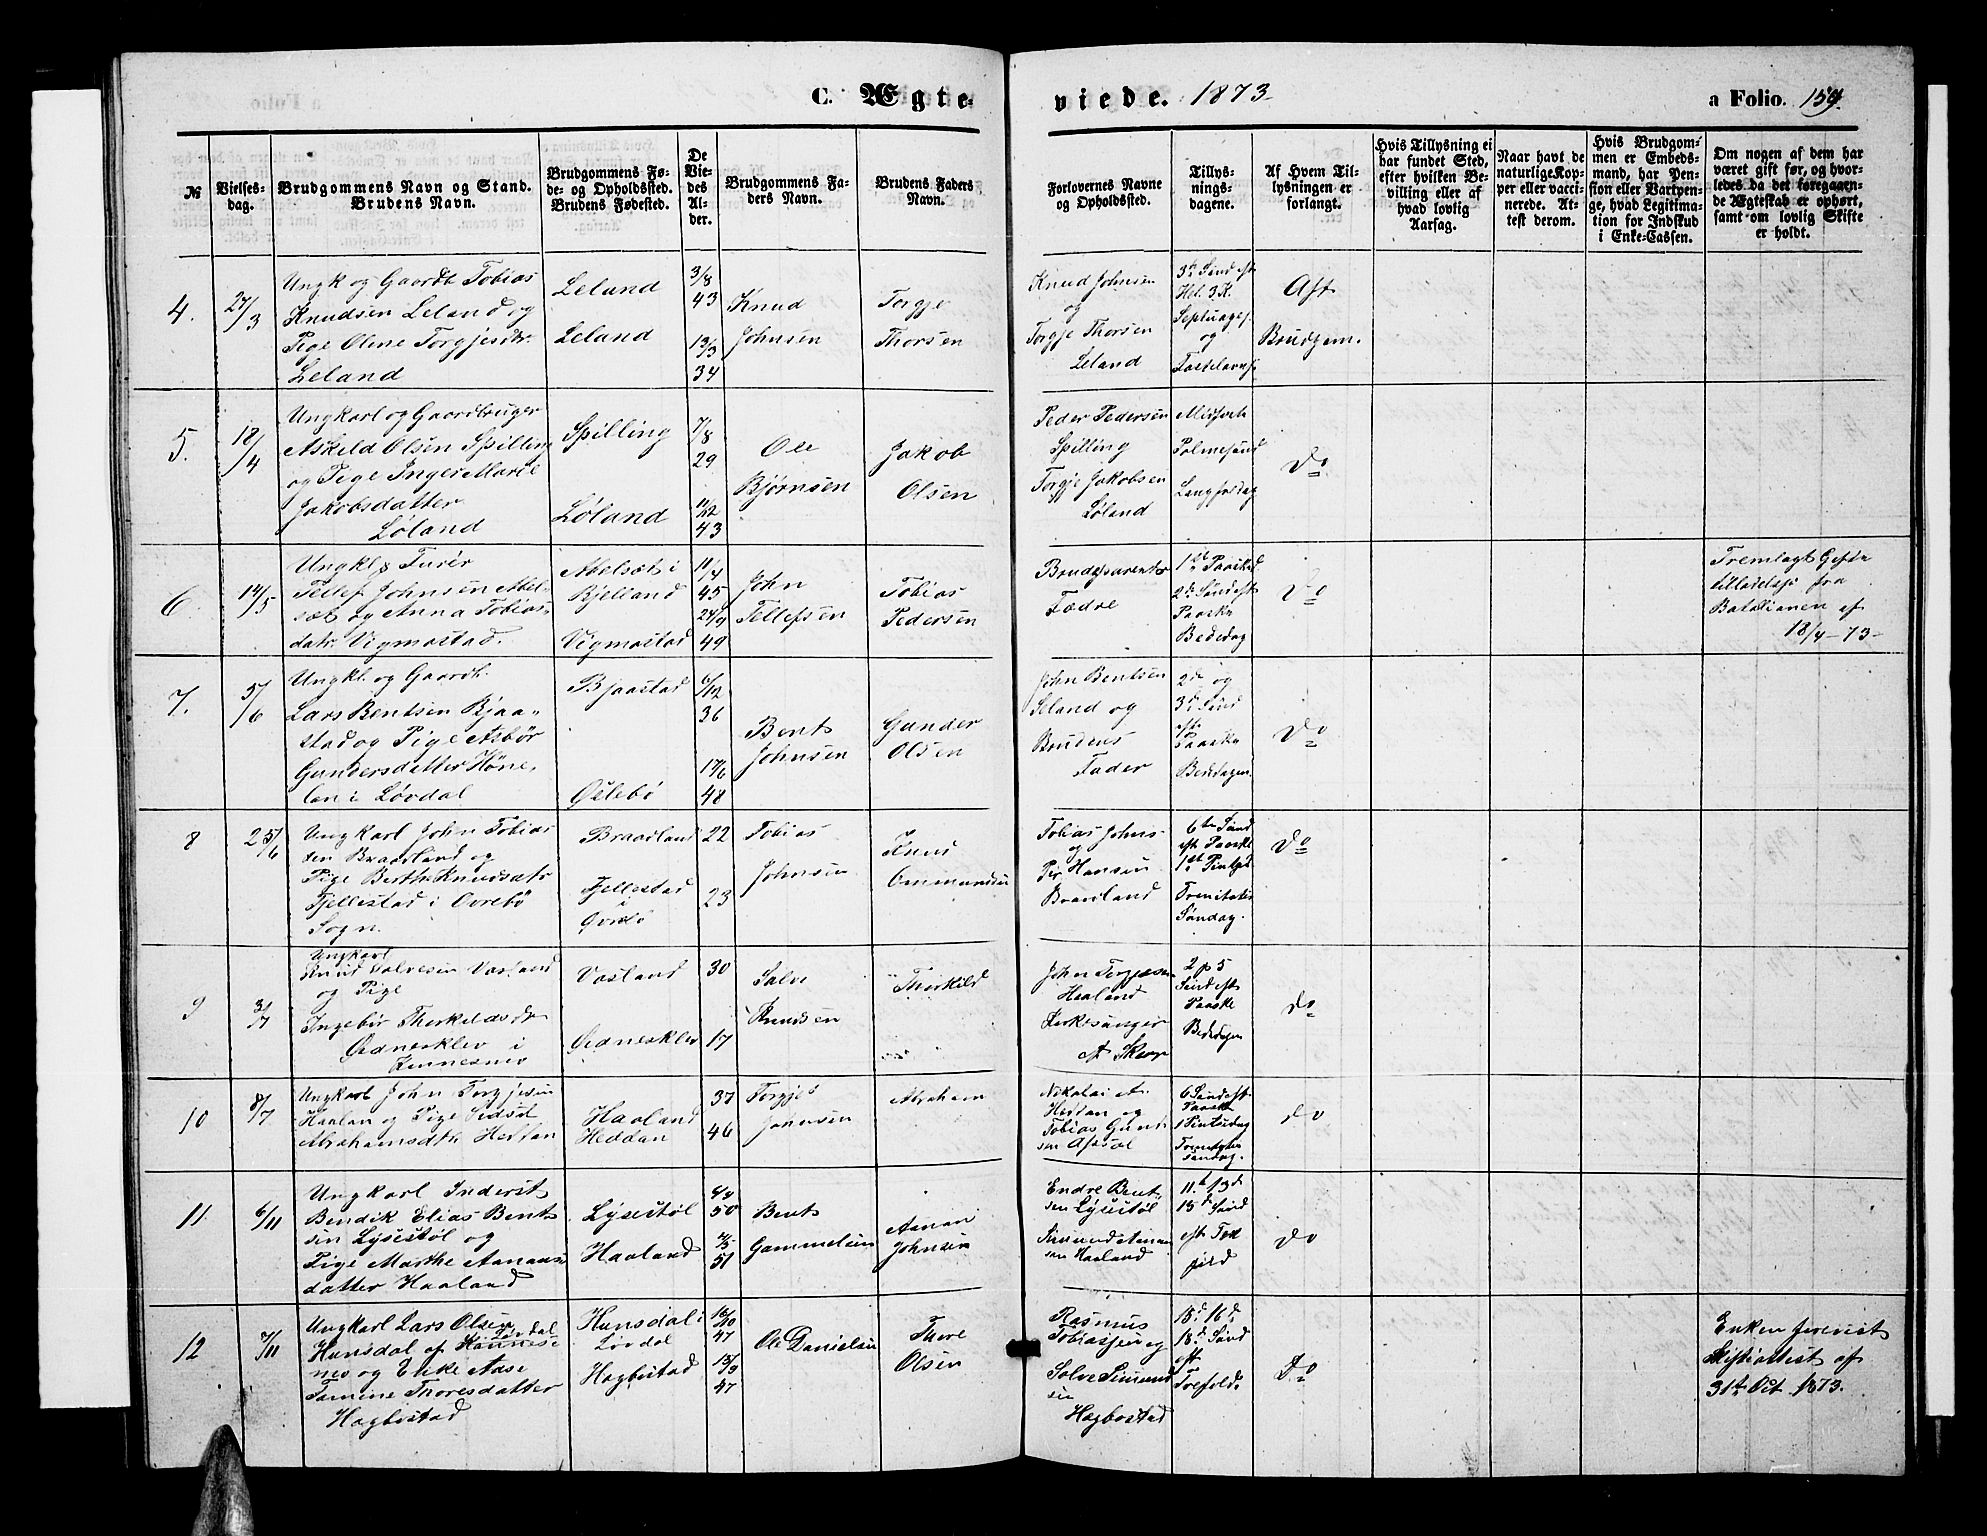 C. Ægte-
viede. 1873
a Folio. 159.
№
Vielses-
dag.
Brudgommens Navn og Stand.
Brudens Navn.
Brudgommens Fø-
de- og Opholdssted.
Brudens Fødested.
De
Vie-
des
Al-
der.
Brudgommens Fa-
ders Navn.
Brudens Faders
Navn.
Forlovernes Navne
og Opholdssted.
Tillys-
nings-
dagene.
Af Hvem Til-
lysningen er
forlangt.
Hvis Tillysning ei
har fundet Sted,
efter hvilken Be-
villing eller af
hvad lovlig
Aarsag.
Naar havt de
naturlige Kop-
per eller vacci-
nerede. At-
test derom.
Hvis Brudgom-
men er Embeds-
mand, har Pen-
sion eller Vartpen-
ge, hvad Legitima-
tion for Indskud
i Enke-Cassen.
Om nogen af dem har
været gift før, og hvor-
ledes da det foregaaen-
de Ægteskab er ophørt,
samt om lovlig Skifte
er holdt.
4.
27/3
Ungk og Gaardb Tobias
Knudsen Leland og
Pige Oline Torgjesdtr.
Leland
Leland
Leland
3/8
43
13/3
34
Knud
Johnsen
Torgje
Thorsen
Knud Johnsen
og
Torgje Thorsen
Leland
3de Sønd eft
Hel. 3 K.
Septuages.
og
Fastelavns
Aft
Brudgom.
5.
18/4
Ungkarl og Gaardbruger
Askeld Olsen Spilling
og Pige Inger Marie
Jakobsdatter
Løland
Spilling
Løland
7/8
29
11/12
43
Ole
Bjørnsen
Jakob
Olsen
Peder Pedersen
Spilling
Torgje Jakobsen
Løland
Midfaste
Palmesønd
Langfredag
Do
6.
14/5
Ungkl &
Tellef Johnsen Abel-
set og Anna Tobias-
datr. Vigmostad.
Abelset i
Bjelland
Vigmostad
11/4
45
24/9
49
John
Tellefsen
Tobias
Pedersen
Fædre
1ste Paaskd
2de Sønd eft
Paaske
Bededag
Do
Fremlagt Gifte
tilladelse fra
Bataillonen af
18/4-73-
7.
5/6
Ungkl. og Gaardb.
Lars Bentsen Bjaa-
stad og Pige Asbør
Gundersdatter Høne,
len i Løvdal
Bjaastad
Øslebø
6/12
36
17/6
48
Bent
Johnsen
Gunder
Olsen
John Bentsen
Seland og
Brudens
Fader
2de og
3de Sønd
eft
Paaske
Bededagen
Do
8
25/6
Ungkarl John Tobias
sen Braavland og
Pige Berthe Knudsdtr
Fjellestad i Øvrebø
Sogn.
Braavland
Fjellestad
i
Øvrebø
22
23
Tobias
Johnsen
Knud
Ommundsen
Tobias Johns
og
Per Hansen
Braavland
6te Sønd
eft Paaske
1st Pintsd
Trenitatis
Søndag.
Do
9
3/7
Ungkarl
Knud Salvesen Vasland
og Pige
Ingebør Therkeldsdr
Ødnesklev i
Vasland
Ødnesklev
30
17
Salve
Knudsen
Therkild
John Torgjesen
Haaland
Kirkesanger
2 p 5
Sønd eft
Paaske
Bededagen
Do
10
8/7
Ungkarl John Torgjesen
Haalan og Pige Sidsel
Abrahamsdtr Heddan
Haaland
Heddan
37
46
Torgjes
Johnsen
Abraham
Nikolai A.
Heddan og
Tobias Gund
sen
6 Sønd eft
Paaske
1 Pintsedag
Trenitatis
søndag.
do
11.
6/11
Ungkarl Inderst
Bendik Elias Bent
sen Lysestøl og
Pige Marthe Aanans
datter Haaland
Lysestøl
Haaland
4/4
50
2/5
51
Bent
Gammelsen
Aanan
Johnsen
Endre Bent-
sen Lysestøl
Simund Aanan
sen Haaland
11te 13d
15d Sønd
eft Tre
fold
Do
12
7/11
Ungkarl Lars Olsen
Løvdal
Hunsdal af
nes og Enke Aase
Tomine Thoresdatter
Hagbostad
Hunsdal i
Løvdal
Hagbostad
16/10
47
15/9
47
Ole Danielsen
Thore
Olsen
Rasmus
Tobiassen og
Salve Simund
sen
Hagbostad
15d 16d
18d Sønd
eft
Trefold.
Do
Enken foreviist
Skifteattest af
31te Oct 1873.